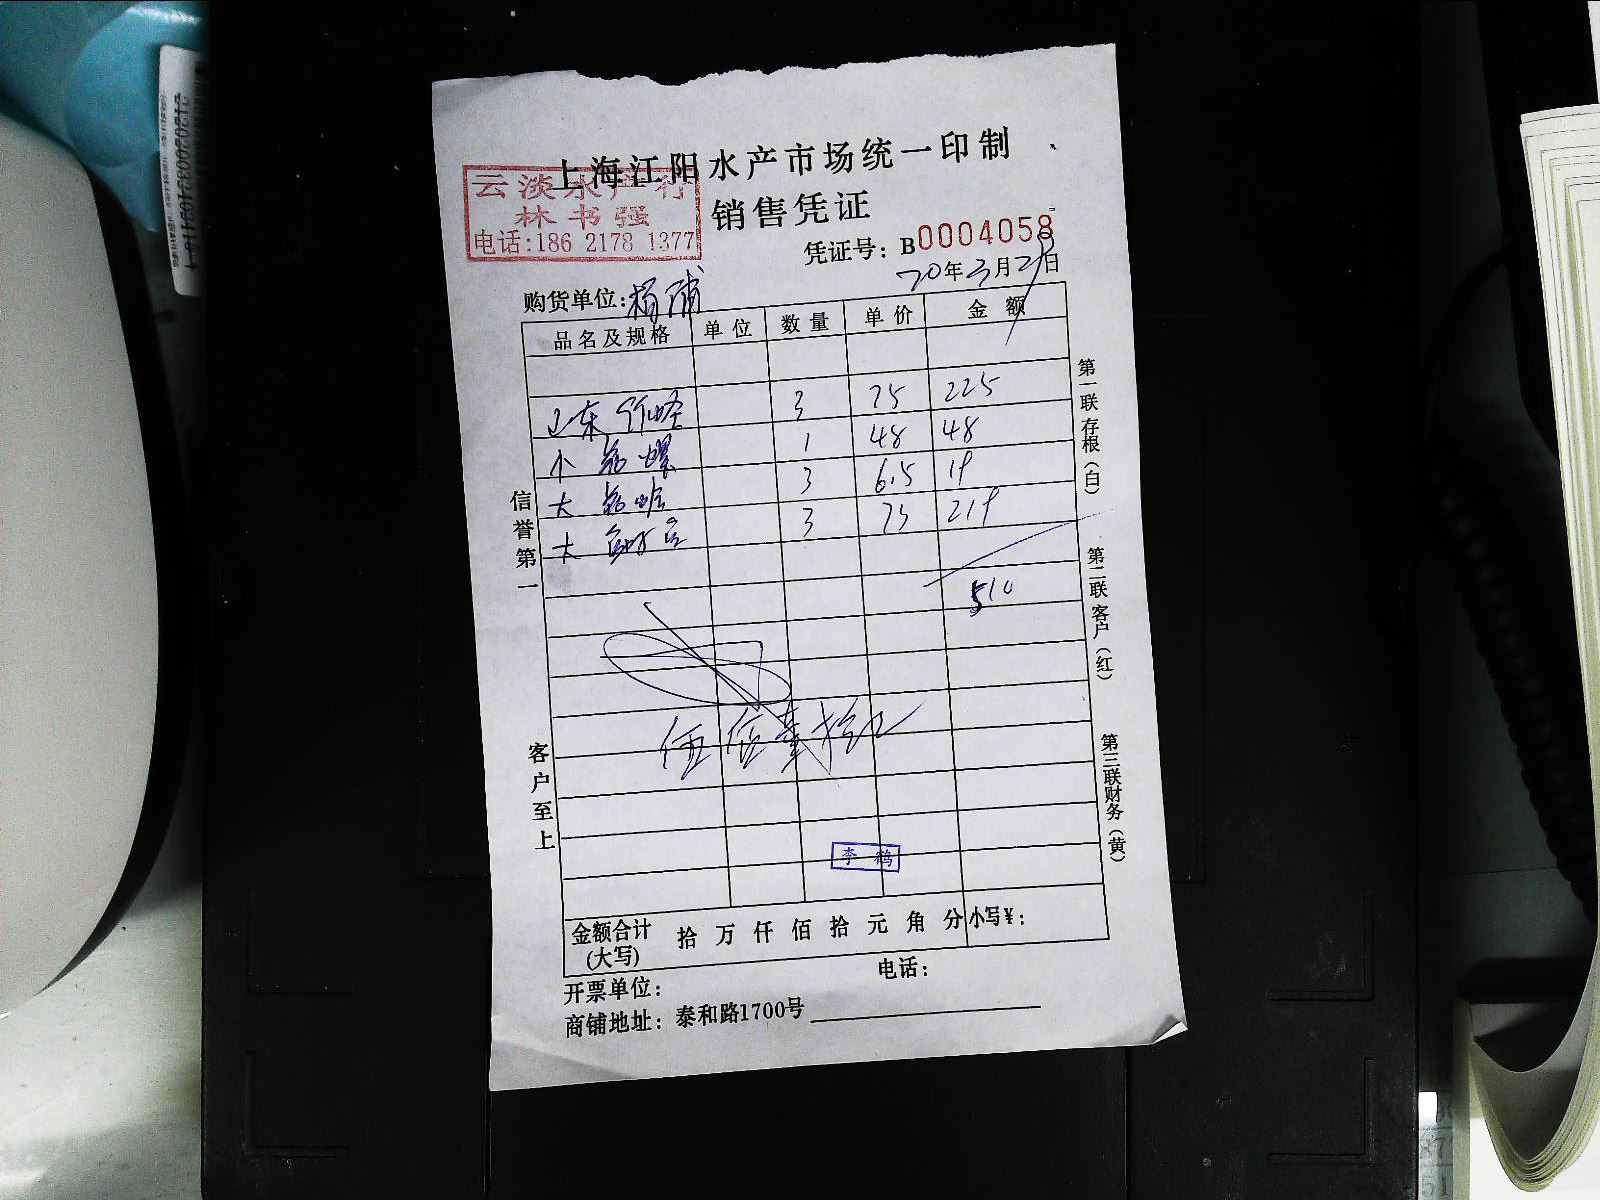 上海江阳水产市场统一印制
销售凭证
云淡水产行
林书强
电话:186 2178 1377
凭证号: B0004058
20年3月29日
购货单位:杨浦
品名及规格 单位 数量 单价 金额
山东竹蛏 3 75 225
小 螺 1 48 48
大 蛤 3 6.5 19
大 3 73 219
510
伍佰壹拾元
李鹤
金额合计(大写) 拾 万 仟 佰 拾 元 角 分 小写¥:
开票单位: 电话:
商铺地址: 泰和路1700号
信誉第一
客户至上
第一联存根(白)
第二联客户(红)
第三联财务(黄)